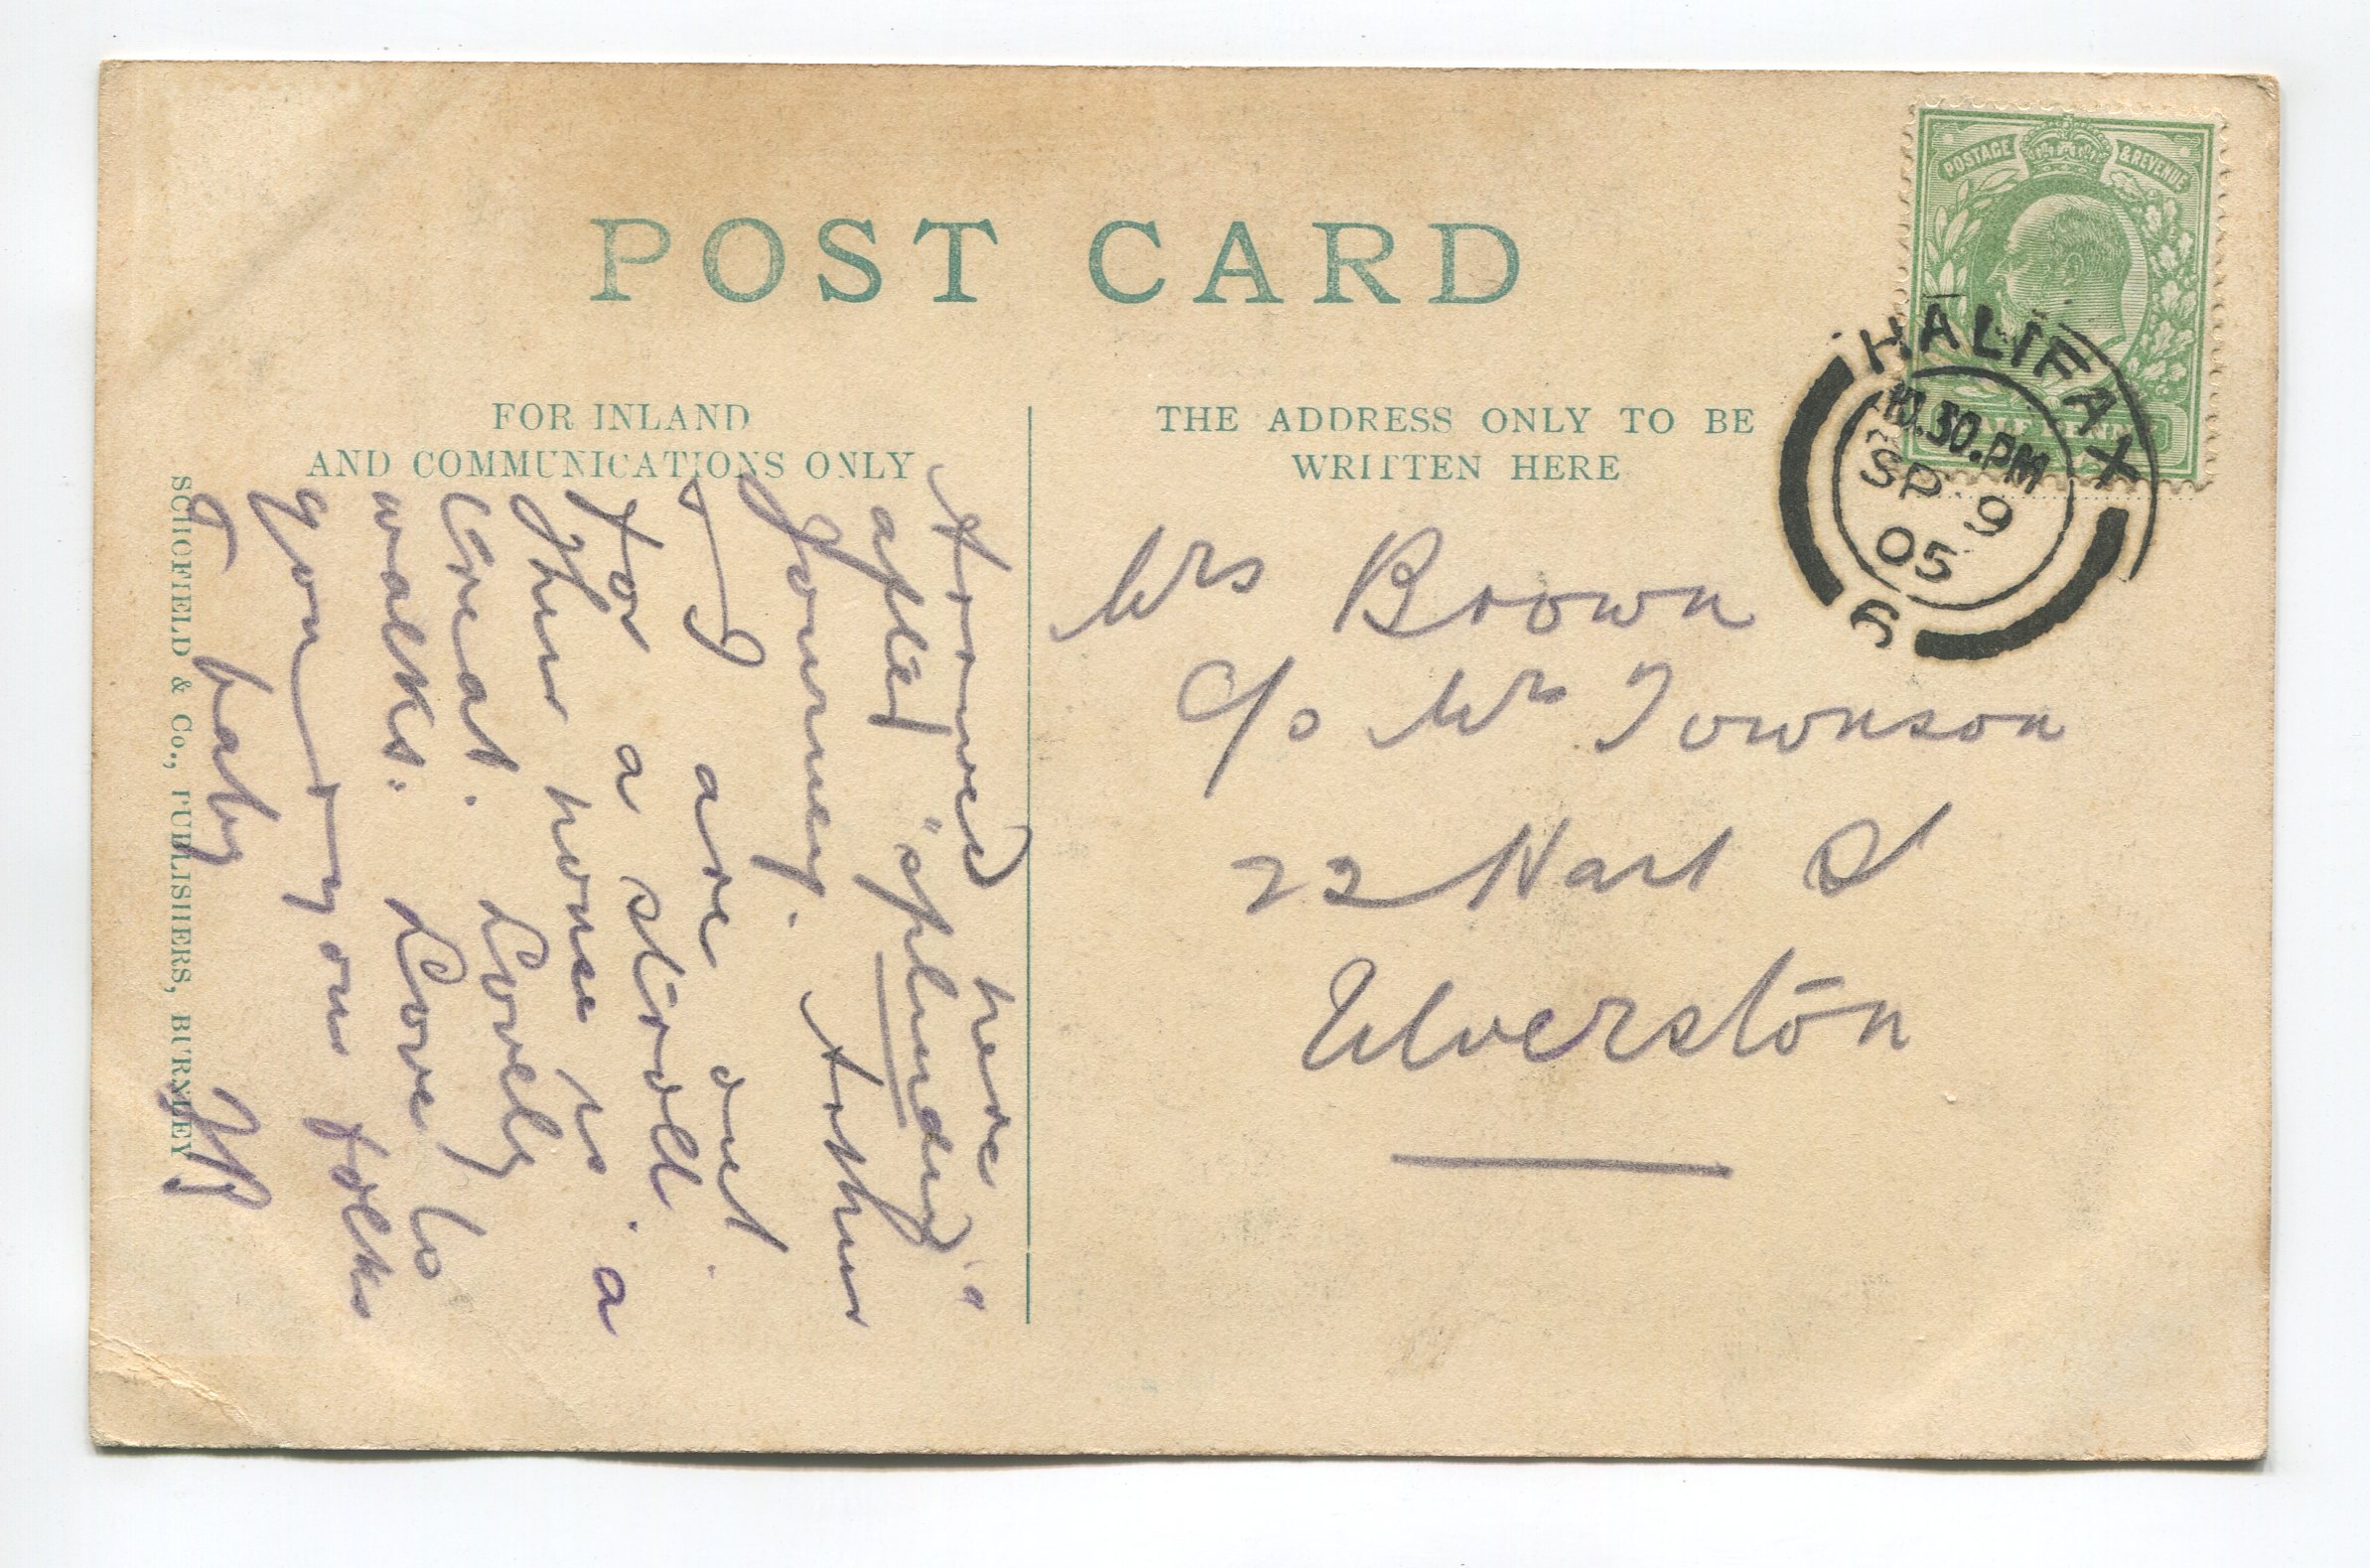 POST CARD
FOR INLAND
AND COMMUNICATIONS ONLY
THE ADDRESS ONLY TO BE
WRITTEN HERE
POSTAGE & REVENUE
HALF PENNY
HALIFAX
10.30.PM
SP 9
05
6
Mrs Brown
c/o Mr Townson
22 Hart St
Ulverston
Arrived here
after a "splendid"
Journey. Arthur
& I are out
for a stroll.
Their house is a
treat. Lovely
walks. Love to
you my own folks
& baby
SCHOFIELD & Co., PUBLISHERS, BURNLEY